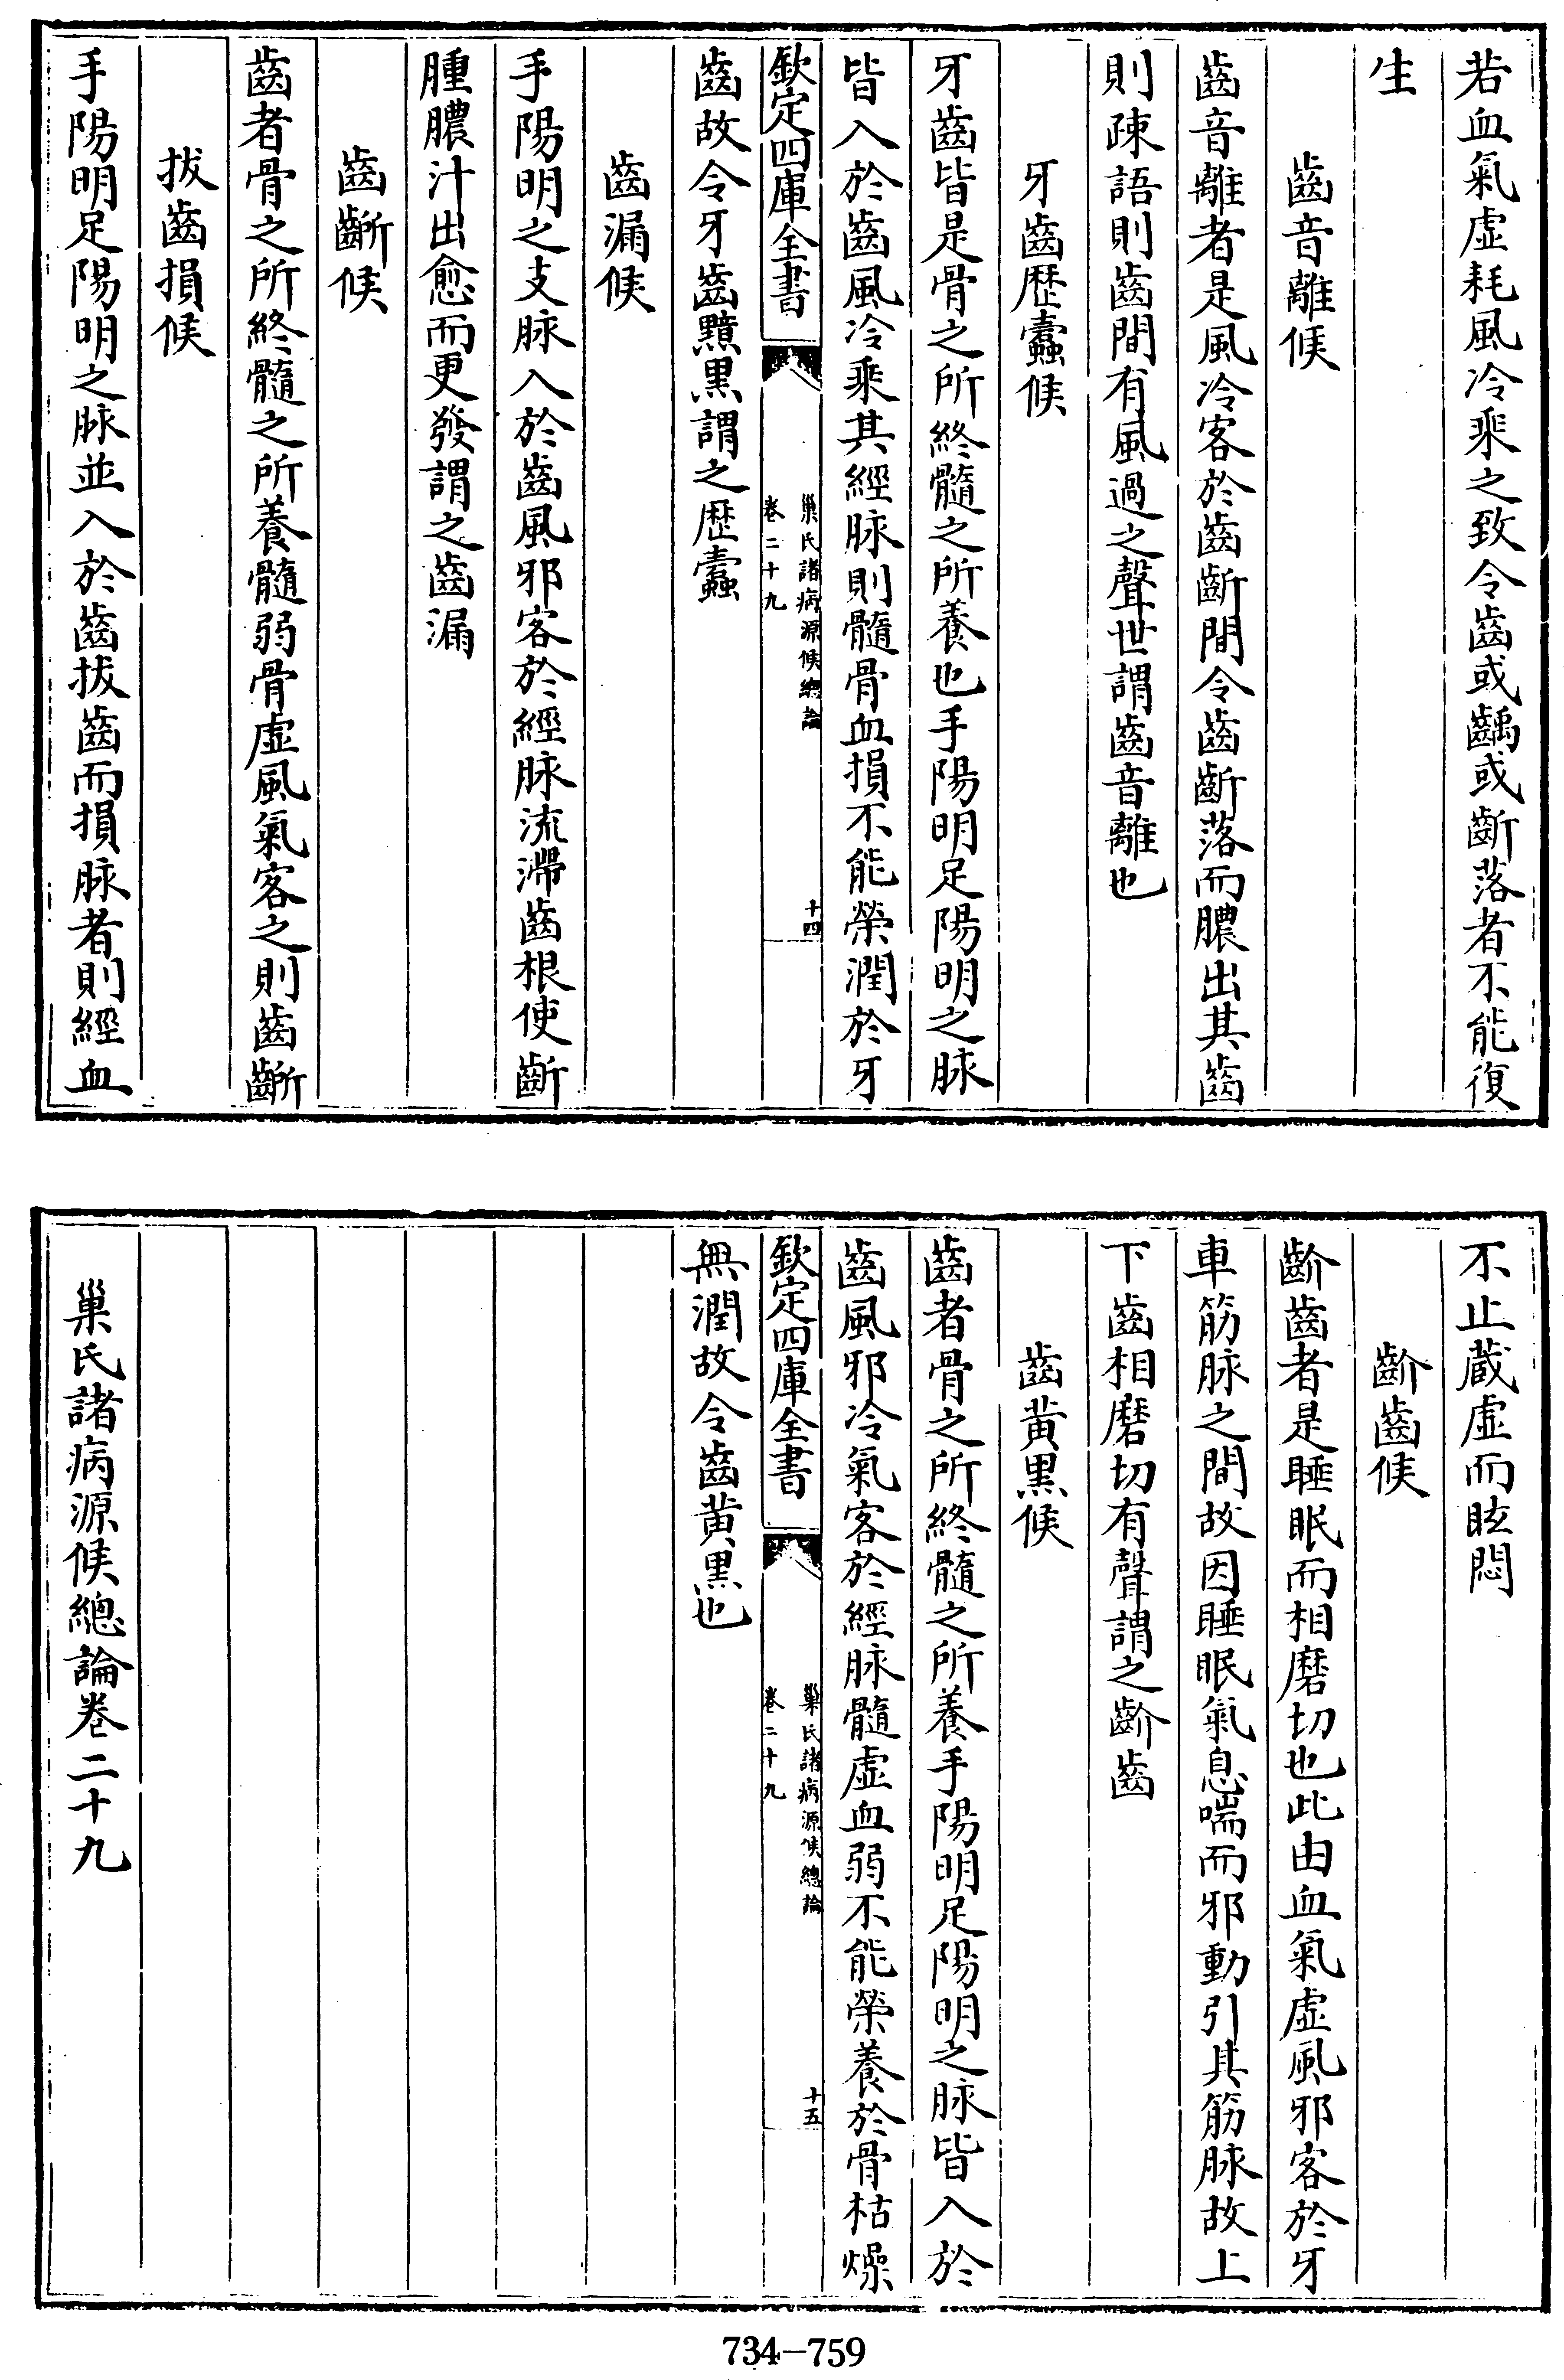 若血氣虛耗風冷乘之致令齒或齲或齗落者不能復
生
齒音離候
齒音離者是風冷客於齒齗間令齒齗落而膿出其齒
則疎語則齒間有風過之聲世謂齒音離也
牙齒歴蠹候
牙齒皆是骨之所終髓之所養也手陽明足陽明之脉
皆入於齒風冷乘其經脉則髓骨血損不能榮潤於牙
欽定四庫全書
巢氏諸病源候總論
卷二十九
十四
齒故令牙齒黯黒謂之歴蠹
齒漏候
手陽明之支脉入於齒風邪客於經脉流滯齒根使齗
腫膿汁出愈而更發謂之齒漏
齒齭候
齒者骨之所終髓之所養髓弱骨虛風氣客之則齒齭
拔齒損候
手陽明足陽明之脉並入於齒拔齒而損脉者則經血
不止蔵虛而眩悶
齘齒候
齘齒者是睡眠而相磨切也此由血氣虛風邪客於牙
車筋脉之間故因睡眠氣息喘而邪動引其筋脉故上
下齒相磨切有聲謂之齘齒
齒黄黒候
齒者骨之所終髓之所養手陽明足陽明之脉皆入於
齒風邪冷氣客於經脉髓虛血弱不能榮養於骨枯燥
欽定四庫全書
巢氏諸病源候總論
卷二十九
十五
無潤故令齒黄黒也
巢氏諸病源候總論卷二十九
734—759